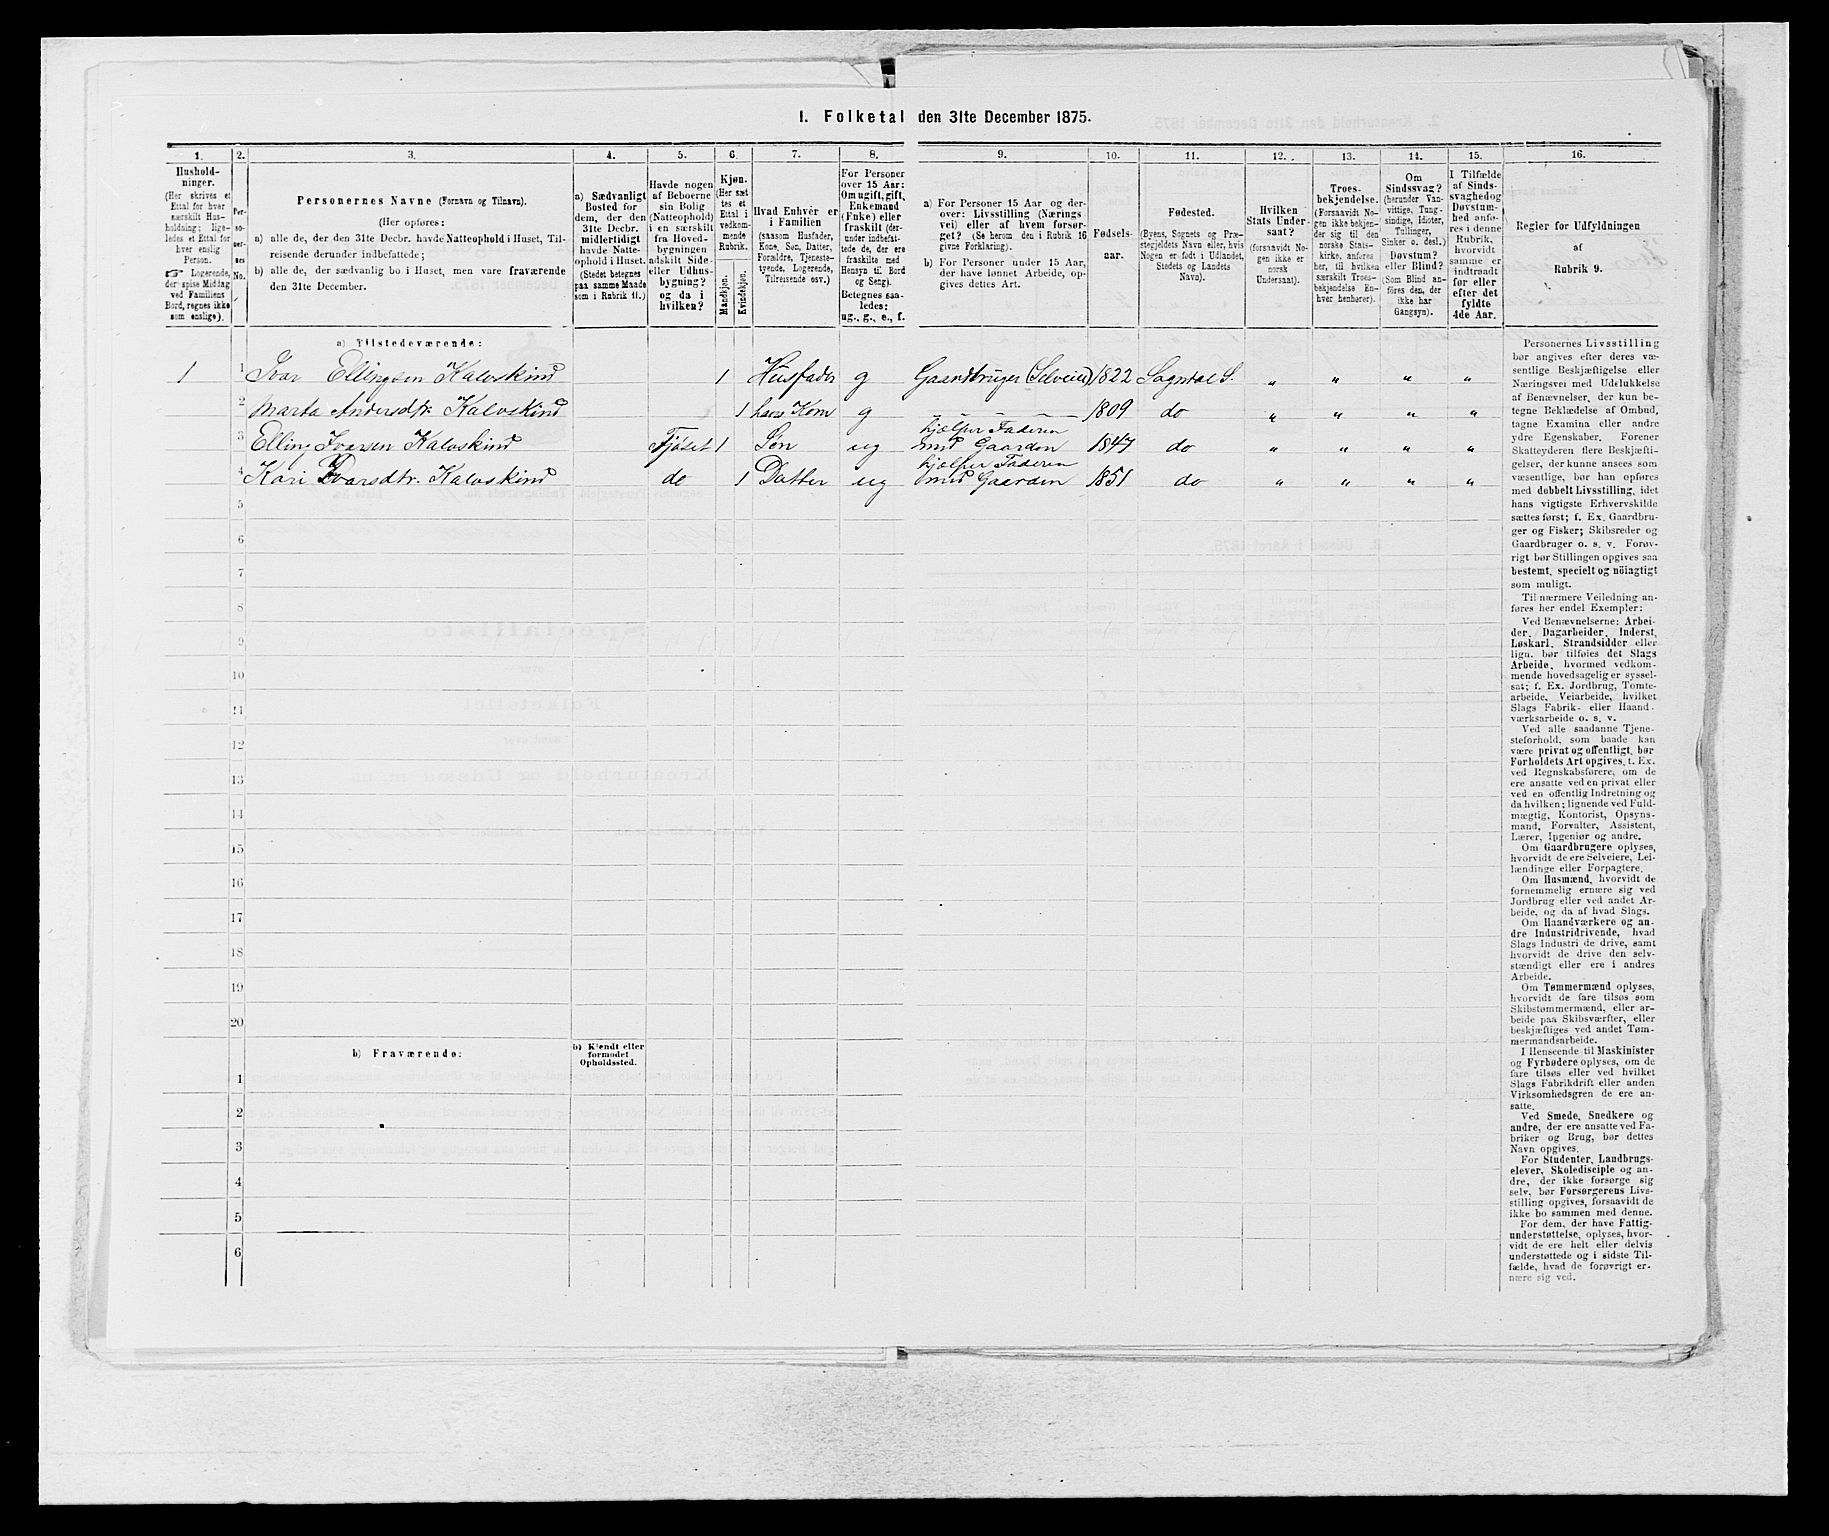 1. Folketal den 31te December 1875.
1. 2. 3. 4. 5. 6. 7. 8. 9. 10. 11. 12. 13. 14. 15. 16.
Hushold-
ninger.
(Her skrives et
Ettal for hver
særskilt Hus-
holdning; lige-
ledes et Ettal for
hver enslig
Person.
☞ Logerende,
der spise Middag
ved Familiens
Bord, regnes ikke
som enslige).
Per-
so-
ner-
nes
No.
Personernes Navne (Fornavn og Tilnavn).
(Her opføres:
a) alle de, der den 31te Decbr. havde Natteophold i Huset, Til-
reisende derunder indbefattede;
b) alle de, der sædvanlig bo i Huset, men vare fraværende
den 31te December.
a) Sædvanligt
Bosted for
dem, der den
31te Decbr.
midlertidigt
havde Natte-
ophold i Huset.
(Stedet betegnes
paa samme Maade
som i Rubrik 11.)
Havde nogen
af Beboerne
sin Bolig
(Natteophold)
i en særskilt
fra Hoved-
bygningen
adskilt Side-
eller Udhus-
bygning?
og da i
hvilken?
Kjøn.
(Her sæt
tes et
Ettal i
vedkom-
mende
Rubrik.
Mandkjøn.
Kvindekjøn.
Hvad Enhver er
i Familien
(saasom Husfader,
Kone, Søn, Datter,
Forældre, Tjeneste-
tyende, Logerende,
Tilreisende osv.)
For Personer
over 15 Aar:
Om ugift, gift,
Enkemand
(Enke) eller
fraskilt (der-
under indbefat-
tede de, der ere
fraskilte med
Hensyn til Bord
og Seng).
Betegnes saa-
ledes:
ug., g., e., f.
a) For Personer 15 Aar og der-
over: Livsstilling (Nærings-
vei) eller af hvem forsør-
get? (Se herom den i Rubrik 16
givne Forklaring).
b) For Personer under 15 Aar,
der have lønnet Arbeide, op-
gives dettes Art.
Fødsels-
aar.
Fødested.
(Byens, Sognets og Præ-
stegjeldets Navn eller, hvis
Nogen er født i Udlandet,
Stedets og Landets
Navn).
Hvilken
Stats Under-
saat?
(forsaavidt No-
gen ikke er
norsk
Undersaat).
Troes-
bekjendelse.
(Forsaavidt No-
gen ikke bekjen-
der sig til den
norske Stats-
kirke, anføres
her, til hvilken
særskilt Troes-
bekjendelse En-
hver henhører).
Om
Sindssvag?
(herunder Van-
vittige, Tung-
sindige, Idioter,
Tullinger,
Sinker o. desl.)
Døvstum?
eller Blind?
(Som Blind an-
føres den, der
ikke har
Gangsyn).
I Tilfælde
af Sinds-
svaghed og
Døvstum-
hed anfø-
res i denne
Rubrik,
hvorvidt
samme er
indtraadt
før eller
efter det
fyldte
4de Aar.
Regler for Udfyldningen
af
Rubrik 9.
a) Tilstedeværende:
1 1 Ivar Ellingsen Kalvskind 1 Husfader g Gaardbruger (Selveier) 1822 Sogndal S. " " " "
2 Marta Andersdtr. Kalvskind 1 hans Kone g " " " 1809 do " " " "
3 Elling Ivarsen Kalvskind Fjøset 1 Søn ug hjelper Faderen med Gaarden 1847 do " " " "
4 Kari Ivarsdtr. Kalvskind do 1 Datter ug hjelper Faderen med Gaarden 1851 do " " " "
5
6
7
8
9
10
11
12
13
14
15
16
17
18
19
20
b) Fraværende:
b) Kjendt eller
formodet
Opholdssted.
1
2
3
4
5
6
Personernes Livsstilling
bør angives efter deres væ-
sentlige Beskjæftigelse eller
Næringsvei med Udelukkelse
af Benævnelser, der kun be-
tegne Beklædelse af Ombud,
tagne Examina eller andre
ydre Egenskaber. Forener
Skatteyderen flere Beskjæfti-
gelser, der kunne ansees som
væsentlige, bør han opføres
med dobbelt Livsstilling, idet
hans vigtigste Erhvervskilde
sættes først; f. Ex. Gaardbru-
ger og Fisker; Skibsreder og
Gaardbruger o. s. v. Forøv-
rigt bør Stillingen opgives saa
bestemt, specielt og nöiagtigt
som muligt.
Til nærmere Veiledning an-
føres her endel Exempler:
Ved Benævnelserne: Arbei-
der, Dagarbeider, Inderst,
Løskarl, Strandsidder eller
lign. bør tilføies det Slags
Arbeide, hvormed vedkom-
mende hovedsagelig er syssel-
sat; f. Ex. Jordbrug, Tomte-
arbeide, Veiarbeide, hvilket
Slags Fabrik- eller Haand-
værksarbeide o. s. v.
Ved alle saadanne Tjene-
steforhold, som baade kan
være privat og offentligt, bør
Forholdets Art opgives, t. Ex.
ved Regnskabsførere, om de
ere ansatte ved en privat eller
ved en offentlig Indretning og
da hvilken; lignende ved Fuld-
mægtig, Kontorist, Opsyns-
mand, Forvalter, Assistent,
Lærer, Ingeniør og andre.
Om Gaardbrugere oplyses,
hvorvidt de ere Selveiere, Lei-
lændinge eller Forpagtere.
Om Husmænd, hvorvidt de
fornemmelig ernære sig ved
Jordbrug eller ved andet Ar-
beide, og da af hvad Slags.
Om Haandværkere og an-
dre Industridrivende, hvad
Slags Industri de drive, samt
hvorvidt de drive den selv-
stændigt eller ere i andres
Arbeide.
Om Tømmermænd oplyses,
hvorvidt de fare tilsøs som
Skibstømmermænd, eller ar-
beide paa Skibsværfter, eller
beskjæftiges ved andet Tøm-
mermandsarbeide.
I Henseende til Maskinister
og Fyrbødere oplyses, om de
fare tilsøs eller ved hvilket
Slags Fabrikdrift eller anden
Virksomhedsgren de ere an-
satte.
Ved Smede, Snedkere og
andre, der ere ansatte ved Fa-
briker og Brug, bør dettes
Navn opgives.
For Studenter, Landbrugs-
elever, Skoledisciple og an-
dre, der ikke forsørge sig
selv, bør Forsørgerens Livs-
stilling opgives, forsaavidt de
ikke bo sammen med denne.
For dem, der have Fattig-
understøttelse, oplyses, hvor-
vidt de ere helt eller delvis
understøttede og i sidste Til-
fælde, hvad de forøvrigt er-
nære sig ved.